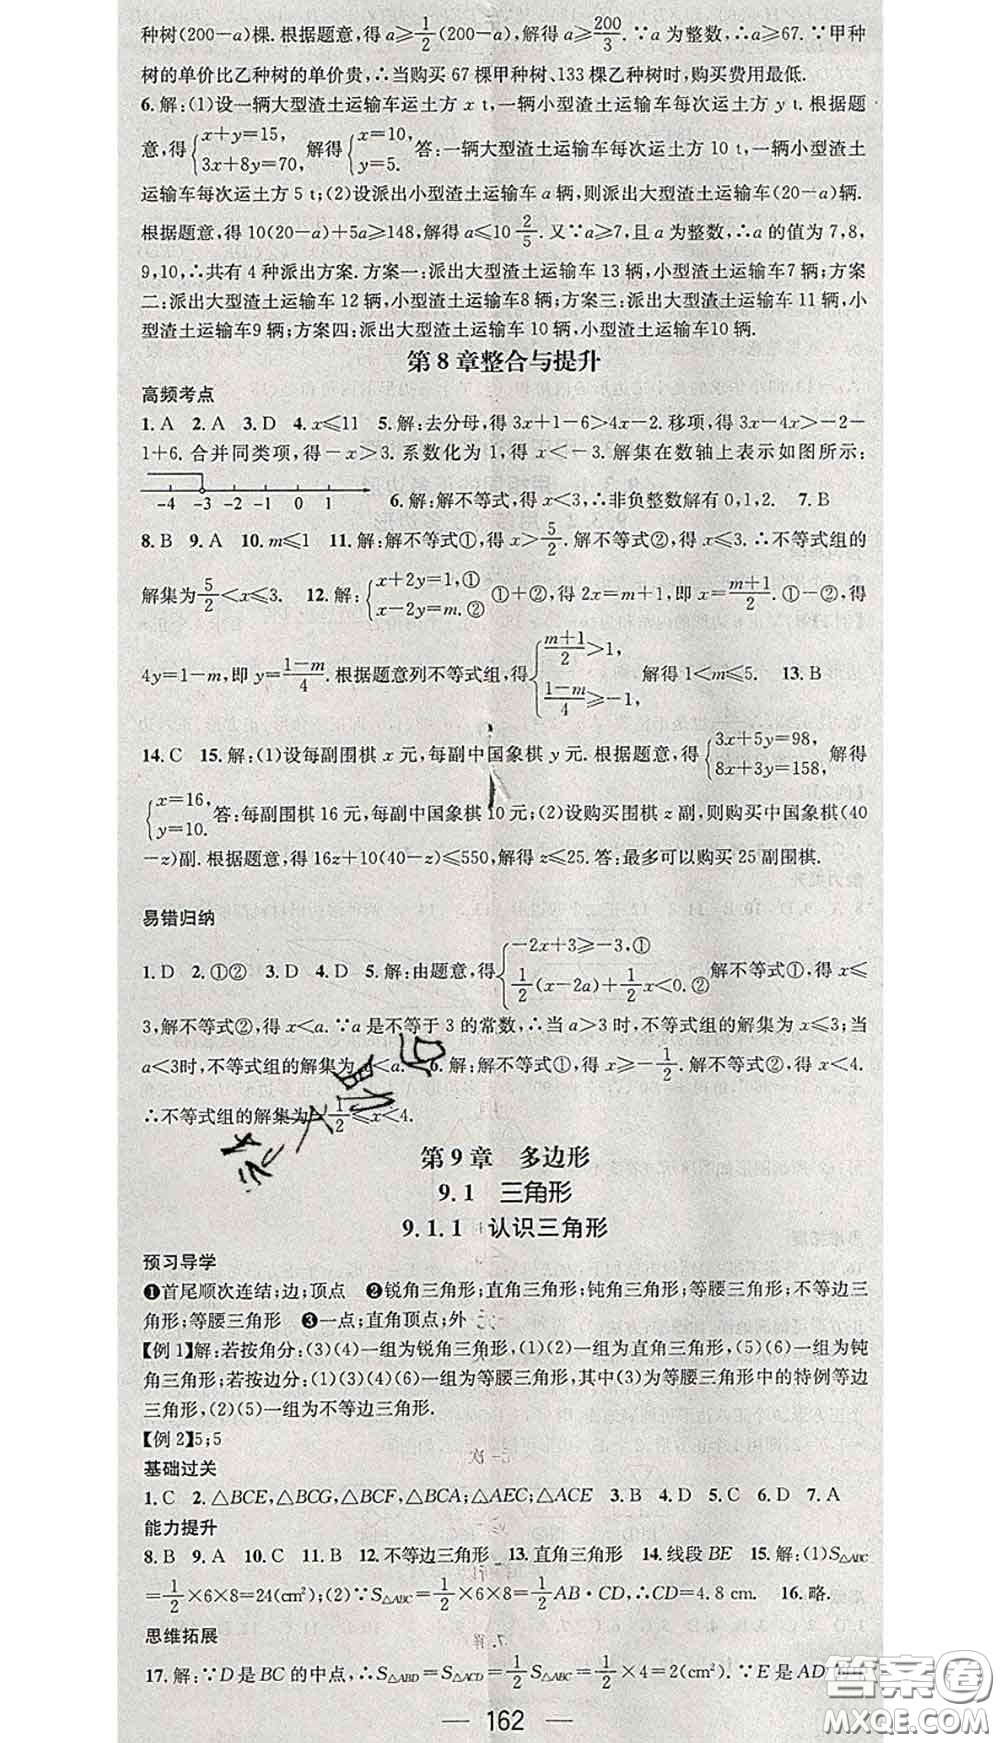 种树(200-a)棵.根据题意,得a⩾1/2(200-a),解得a⩾200/3.∵a为整数,∴a⩾67.∵甲种
树的单价比乙种树的单价贵,∴当购买67棵甲种树、133棵乙种树时,购买费用最低.
6.解:(1)设一辆大型渣土运输车运土方x t,一辆小型渣土运输车每次运土方y t.根据题
意,得{x+y=15, 3x+8y=70, 解得{x=10, y=5. 答:一辆大型渣土运输车每次运土方10 t,一辆小型渣土
运输车每次运土方5 t;(2)设派出小型渣土运输车a辆,则派出大型渣土运输车(20-a)辆.
根据题意,得10(20-a)+5a⩾148,解得a⩽10 2/5.又∵a⩾7,且a为整数,∴a的值为7,8,
9,10,∴共有4种派出方案.方案一:派出大型渣土运输车13辆,小型渣土运输车7辆;方案
二:派出大型渣土运输车12辆,小型渣土运输车8辆;方案三:派出大型渣土运输车11辆,小
型渣土运输车9辆;方案四:派出大型渣土运输车10辆,小型渣土运输车10辆.
第8章整合与提升
高频考点
1.A 2.A 3.D 4.x⩽11 5.解:去分母,得3x+1-6>4x-2.移项,得3x-4x>-2-
1+6.合并同类项,得-x>3.系数化为1,得x<-3.解集在数轴上表示如图所示:
-4 -3 -2 -1 0 1 6.解:解不等式,得x<3,∴非负整数解有0,1,2. 7.B
8.B 9.A 10.m⩽1 11.解:解不等式①,得x>5/2.解不等式②,得x⩽3.∴不等式组的
解集为5/2<x⩽3. 12.解:{x+2y=1,① x-2y=m.② ①+②,得2x=m+1,即x=(m+1)/2.①-②,得
4y=1-m,即y=(1-m)/4.根据题意列不等式组,得{(m+1)/2>1, (1-m)/4⩾-1, 解得1<m⩽5. 13.B
14.C 15.解:(1)设每副围棋x元,每副中国象棋y元.根据题意,得{3x+5y=98, 8x+3y=158, 解得
{x=16, y=10. 答:每副围棋16元,每副中国象棋10元;(2)设购买围棋z副,则购买中国象棋(40
-z)副.根据题意,得16z+10(40-z)⩽550,解得z⩽25.答:最多可以购买25副围棋.
易错归纳
1.D 2.①② 3.D 4.D 5.解:由题意,得{-2x+3⩾-3,① 1/2(x-2a)+1/2x<0.② 解不等式①,得x⩽
3,解不等式②,得x<a.∵a是不等于3的常数,∴当a>3时,不等式组的解集为x⩽3;当
a<3时,不等式组的解集为x<a. 6.解:解不等式①,得x⩾-1/2.解不等式②,得x<4.
∴不等式组的解集为-1/2⩽x<4.
第9章 多边形
9.1 三角形
9.1.1 认识三角形
预习导学
❶首尾顺次连结;边;顶点 ❷锐角三角形;直角三角形;钝角三角形;等腰三角形;不等边三
角形;等腰三角形 ❸一点;直角顶点;外
【例1】解:若按角分:(3)(4)一组为锐角三角形,(1)(2)一组为直角三角形,(5)(6)一组为钝
角三角形;若按边分:(1)(3)(4)(6)一组为等腰三角形,其中(3)为等腰三角形中的特例等边
三角形,(2)(5)一组为不等边三角形.
【例2】5;5
基础过关
1.C 2.△BCE,△BCG,△BCF,△BCA;△AEC;△ACE 3.B 4.D 5.C 6.D 7.A
能力提升
8.B 9.A 10.C 11.B 12.不等边三角形 13.直角三角形 14.线段BE 15.解:(1)S△ABC
=1/2×6×8=24(cm²);(2)∵S△ABC=1/2×6×8=1/2AB·CD,∴CD=4.8 cm. 16.略.
思维拓展
17.解:∵D是BC的中点,∴S△ABD=S△ACD=1/2S△ABC=1/2×4=2(cm²).∵E是AD
162
答案圈
MXQE.COM